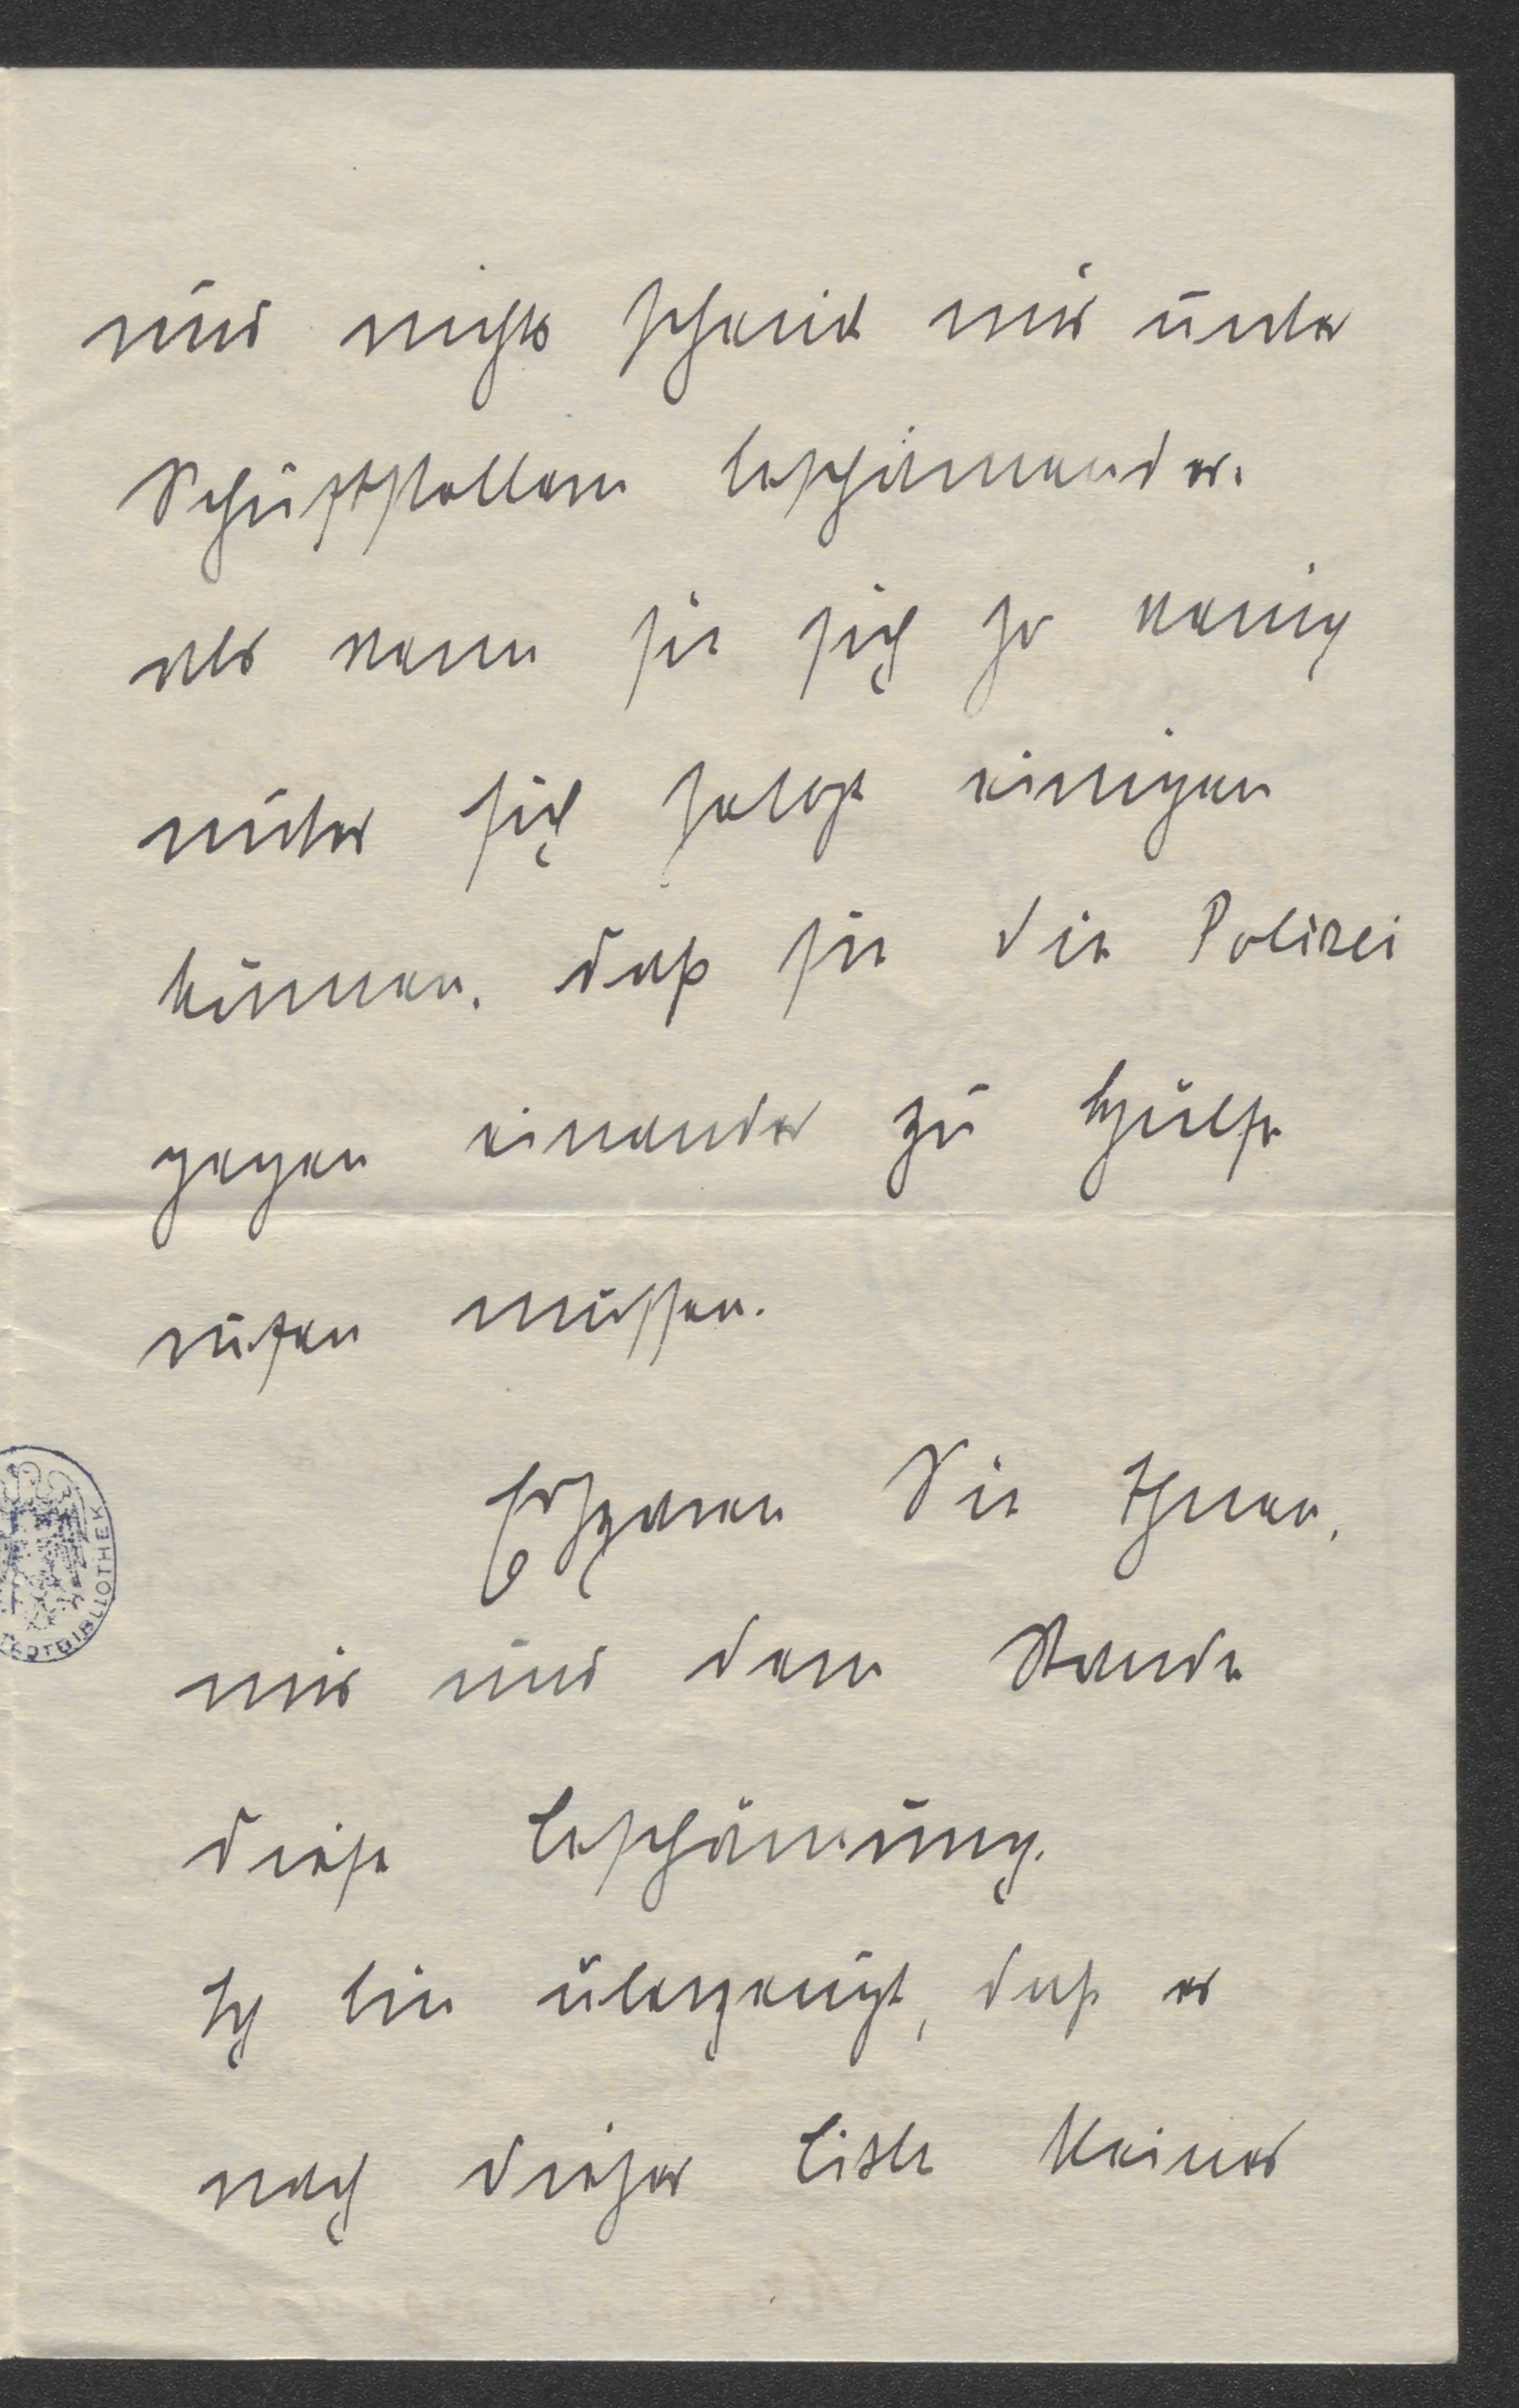 und nichts scheint mir unter
Schriftstellern beschämender,
als wenn sie sich so wenig
unter sich selbst einigen
können, daß sie die Polizei
gegen einander zu Hülfe
rufen müssen.
Ersparen Sie Ihnen,
mir und dem Stande
diese Beschämung.
Ich bin überzeugt, daß es
nach dieser Bitte keines
DTBIBLIOTHEK